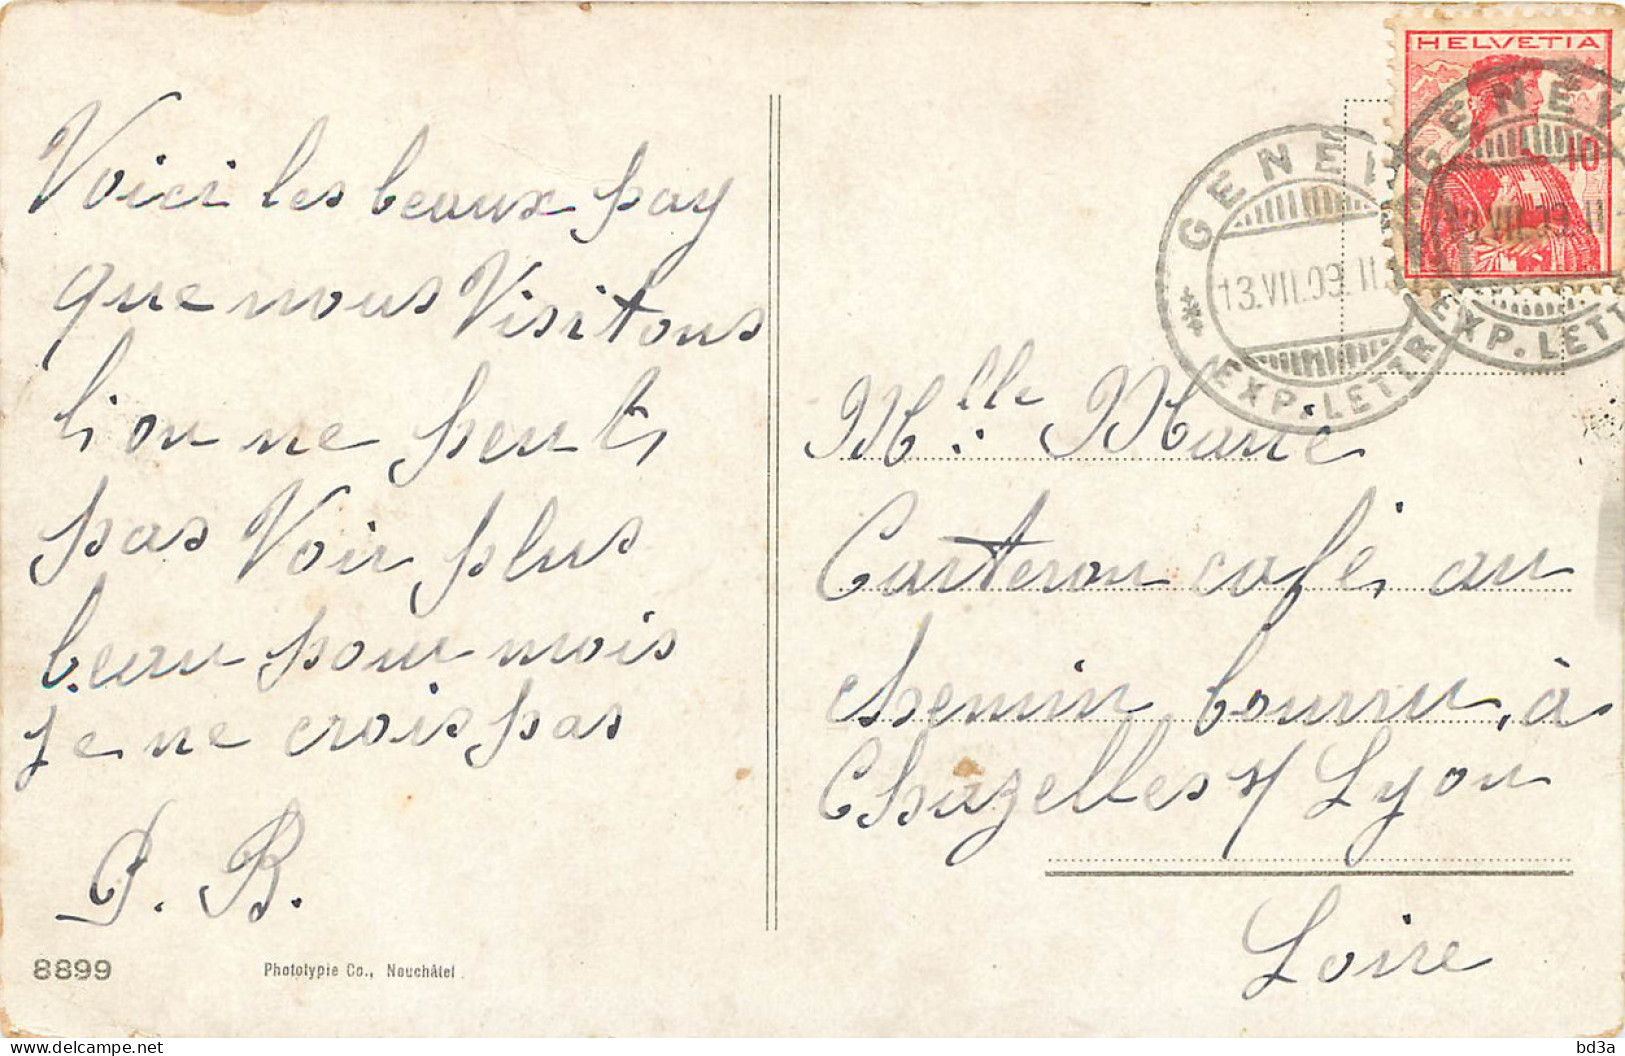 Voici les beaux pay
que nous Visitons
li on ne peut,
pas Voir plus
beau pour mois
je ne crois pas
P. B.
8899
Phototypie Co., Neuchâtel
HELVETIA
10
GENÈV
13.VII.09.11
EXP. LETTR
GENÈV
13.VII.09.11
EXP. LETT
Mlle Marie
Carteron café, au
chemin bourru, à
Chazelles s/ Lyon
Loire
bd3a